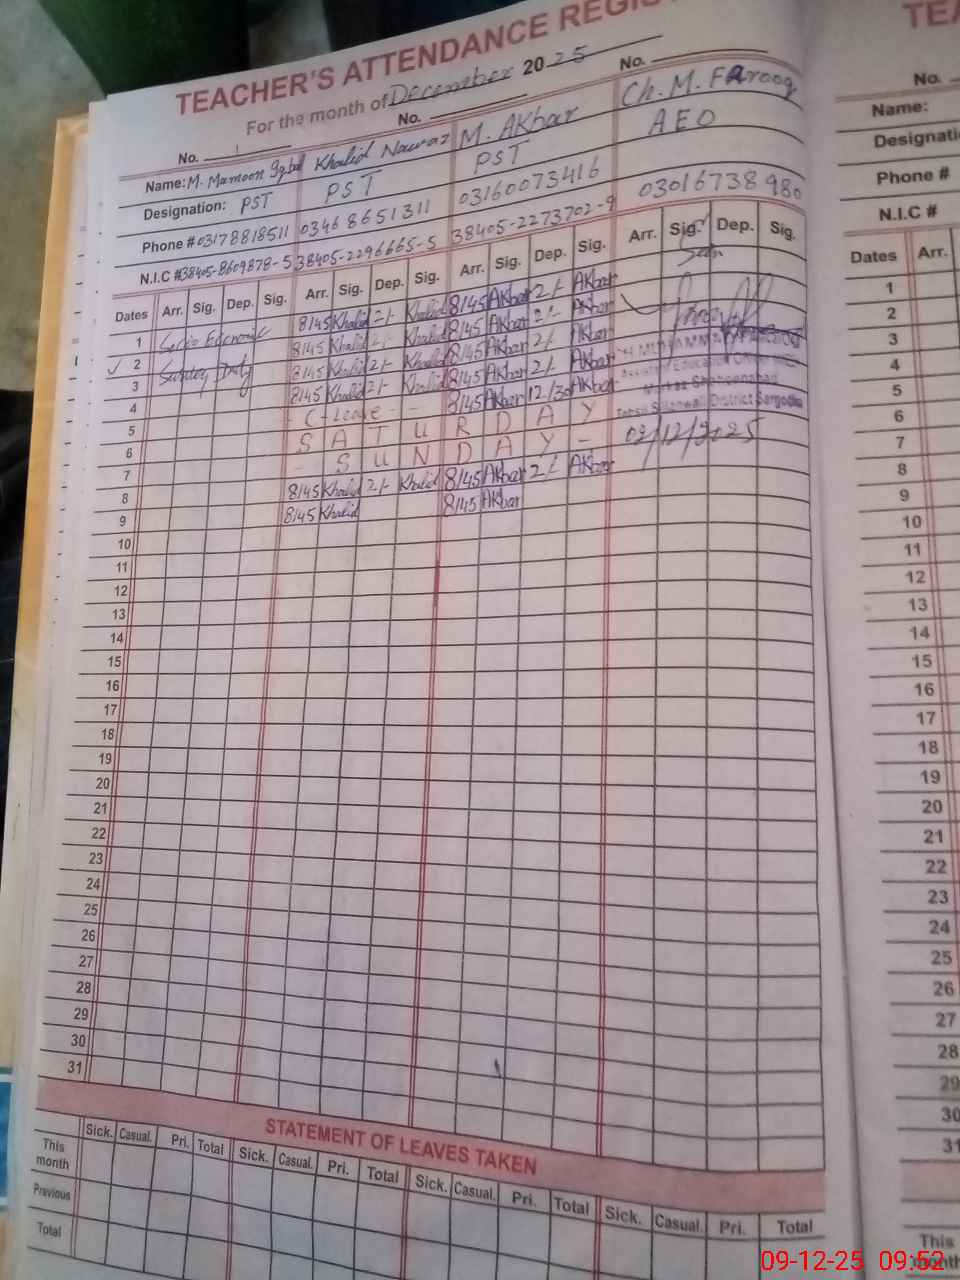 TEACHER'S ATTENDANCE REGIS
For the month of December 20 25
No. 1 No. No.
Name: M. Mamoon Iqbal Khalid Nawaz M. AKbar Ch. M. FArooq
Designation: PST PST PST AEO
Phone # 03178818511 03468651311 03160073416 03016738980
N.I.C # 38405-8609878-5 38405-2296665-5 38405-2273702-9
Dates Arr. Sig. Dep. Sig. Arr. Sig. Dep. Sig. Arr. Sig. Dep. Sig. Arr. Sig. Dep. Sig.
1 Socio Economic 8/45 Khalid 2/- Khalid 8/45 AKbar 2/- AKbar
2 Survey Duty 8/45 Khalid 2/- Khalid 8/45 AKbar 2/- AKbar
3 8/45 Khalid 2/- Khalid 8/45 AKbar 2/- AKbar
4 8/45 Khalid 2/- Khalid 8/45 AKbar 2/- AKbar
5 - C-Leave - - 8/45 AKbar 12/30 AKbar
6 S A T U R D A Y
7 - S U N D A Y -
8 8/45 Khalid 2/- Khalid 8/45 AKbar 2/- AKbar
9 8/45 Khalid 8/45 AKbar
10
11
12
13
14
15
16
17
18
19
20
21
22
23
24
25
26
27
28
29
30
31
Assistant Education Officer
District Sargodha
02/12/2025
STATEMENT OF LEAVES TAKEN
Sick. Casual. Pri. Total Sick. Casual. Pri. Total Sick. Casual. Pri. Total Sick. Casual. Pri. Total
This month
Previous
Total
TEA
No.
Name:
Designati
Phone #
N.I.C #
Dates Arr.
1
2
3
4
5
6
7
8
9
10
11
12
13
14
15
16
17
18
19
20
21
22
23
24
25
26
27
28
29
30
31
This
month
09-12-25 09:52